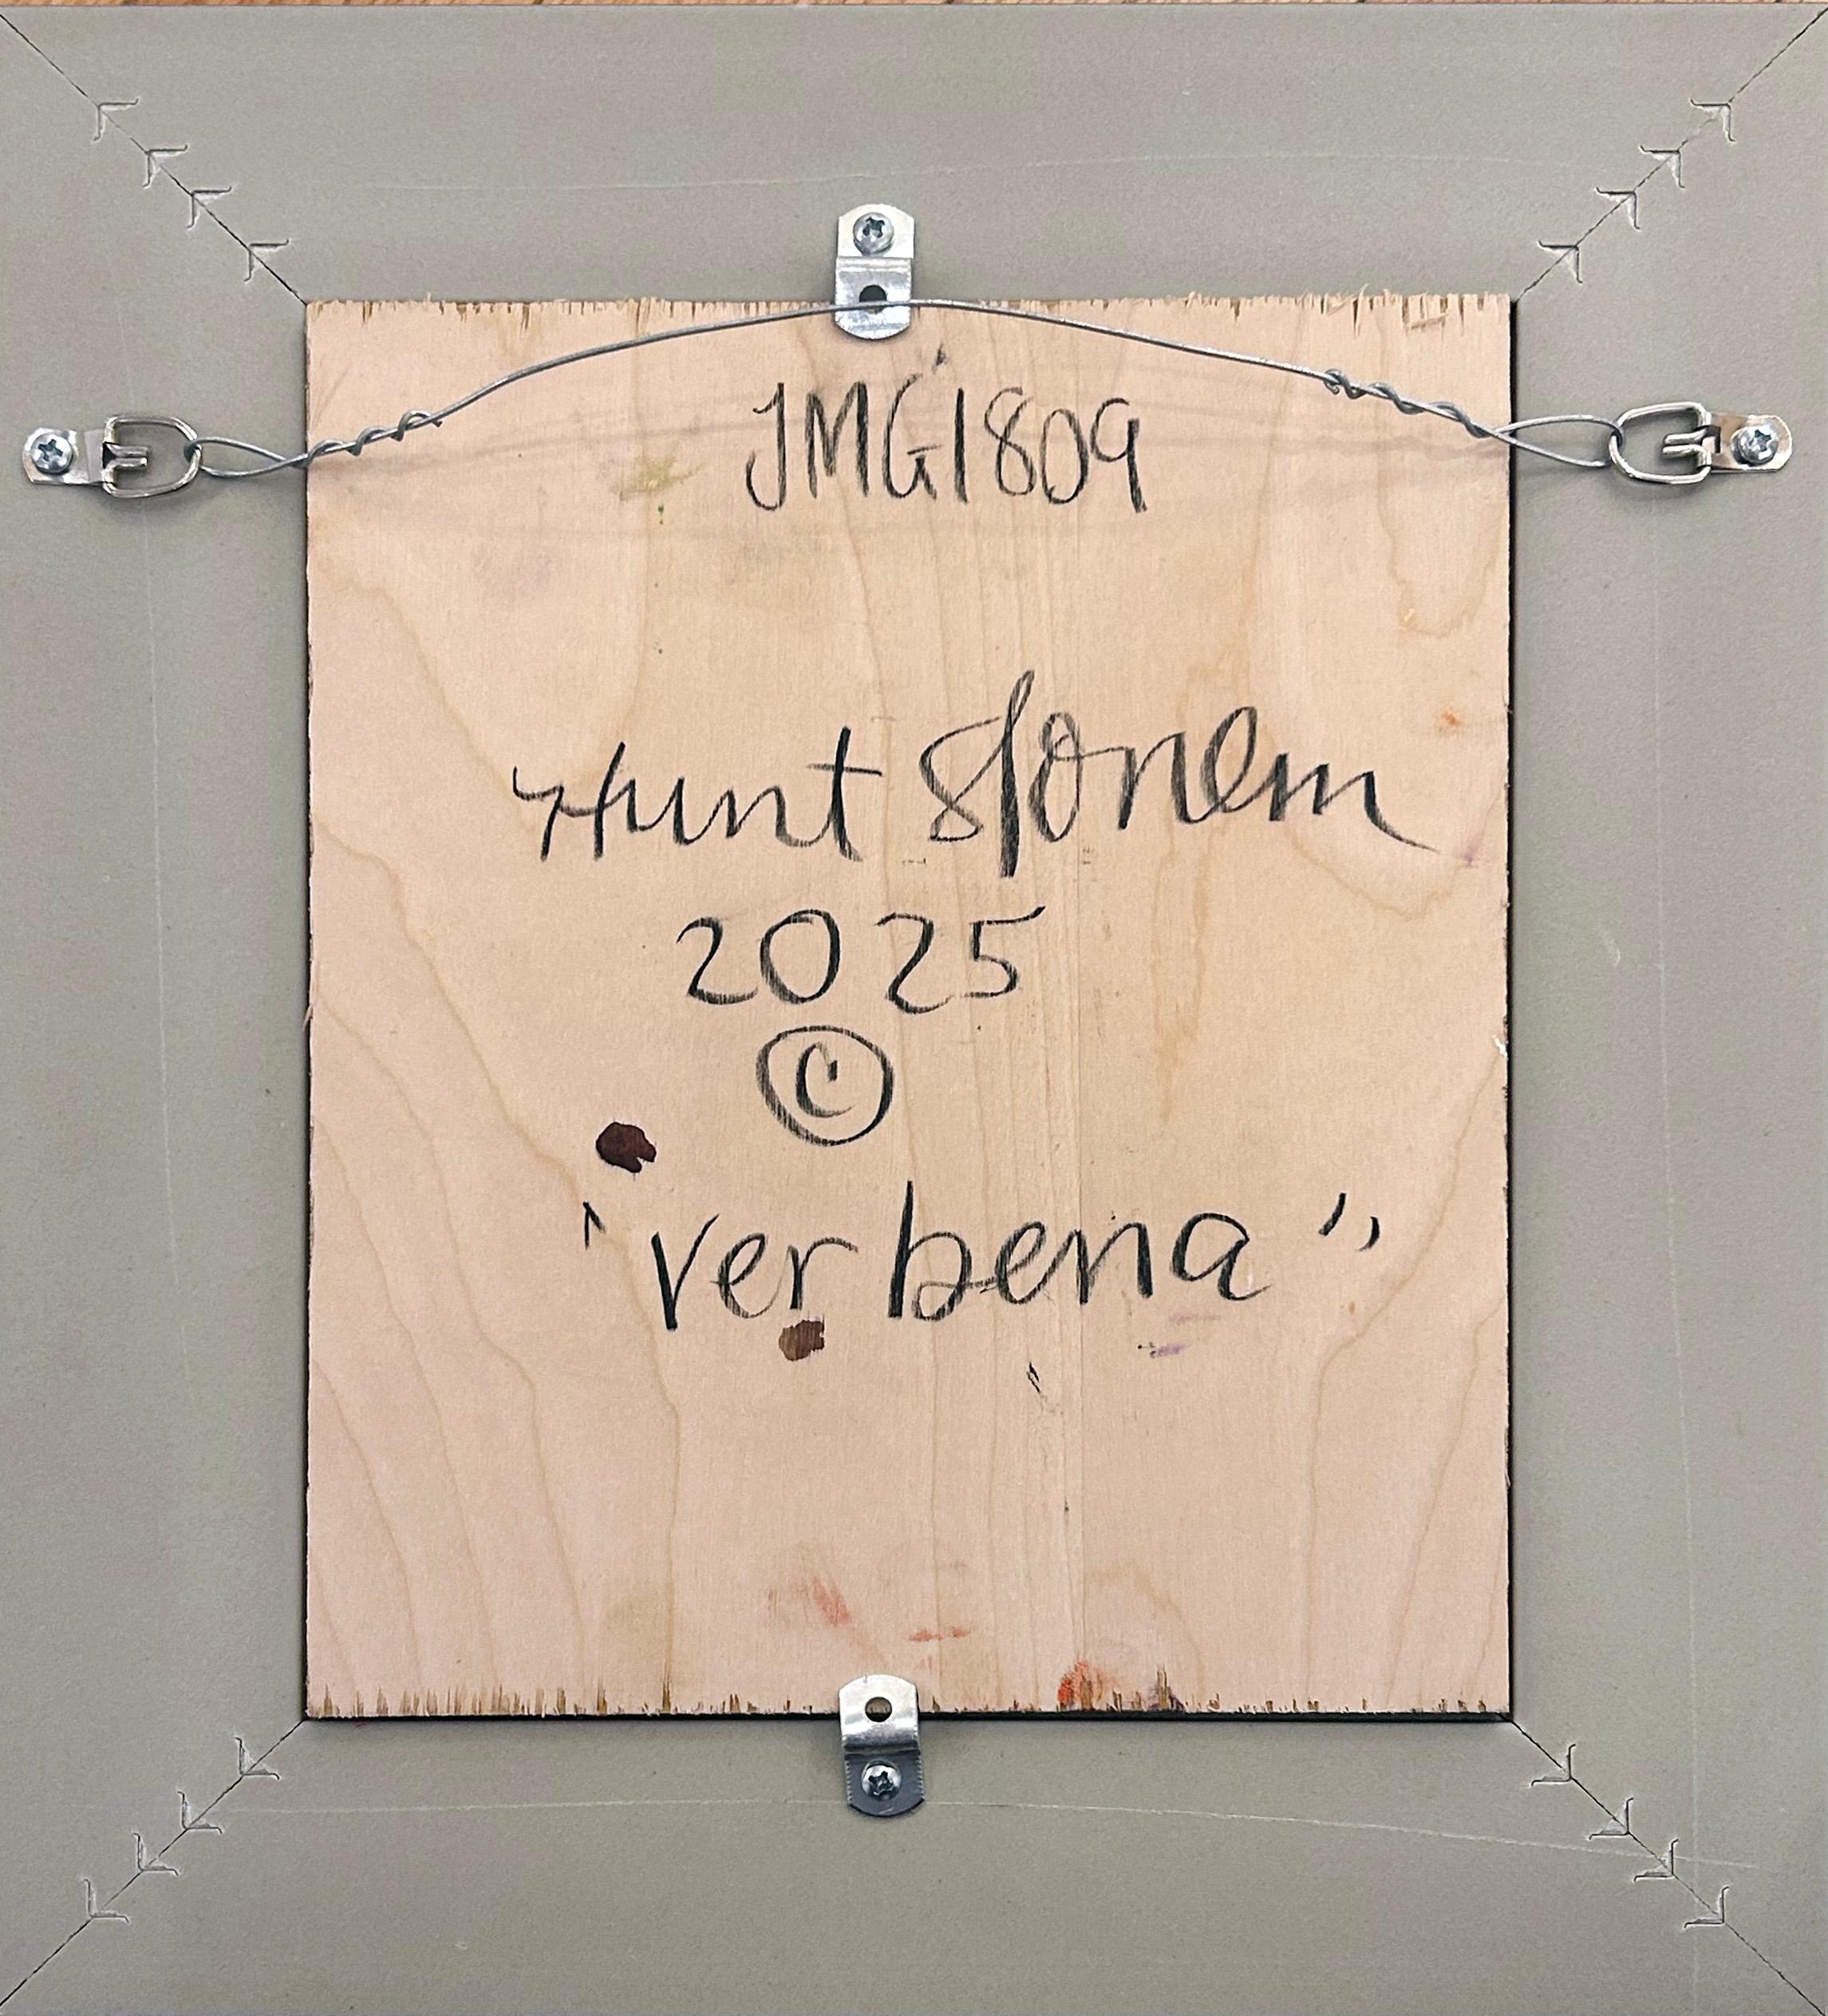 JMG1809
Hunt Slonem
2025
©
"Verbena"